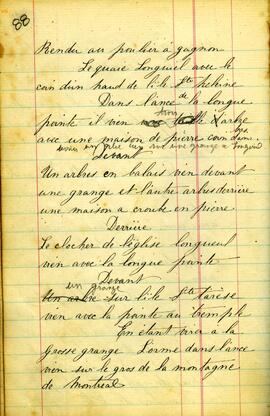 88
Rendu au poulier à gagnon
Le quaie Longueil avec le
coin d'un haud de l'ile Ste helaine
Dans l'ance de la longue
pointe il vien trois arbre
avec une maison de pierre
Devant
Un arbres en balais vien devant
une grange et l'autre arbres derriere
une maison a croute en pierre
Derrière
Le clocher de l'église longueul
vien avec la longue pointe
Devant
un grange
Un arbre sur l'ile Ste tarèse
vien avec la pointe au tremple
En étant virer à la
grosse grange Lorme dans l'ance
vien sur le gros de la montagne
de Montreal